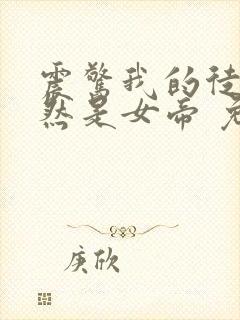 震惊我的徒
然是女帝
庚欣